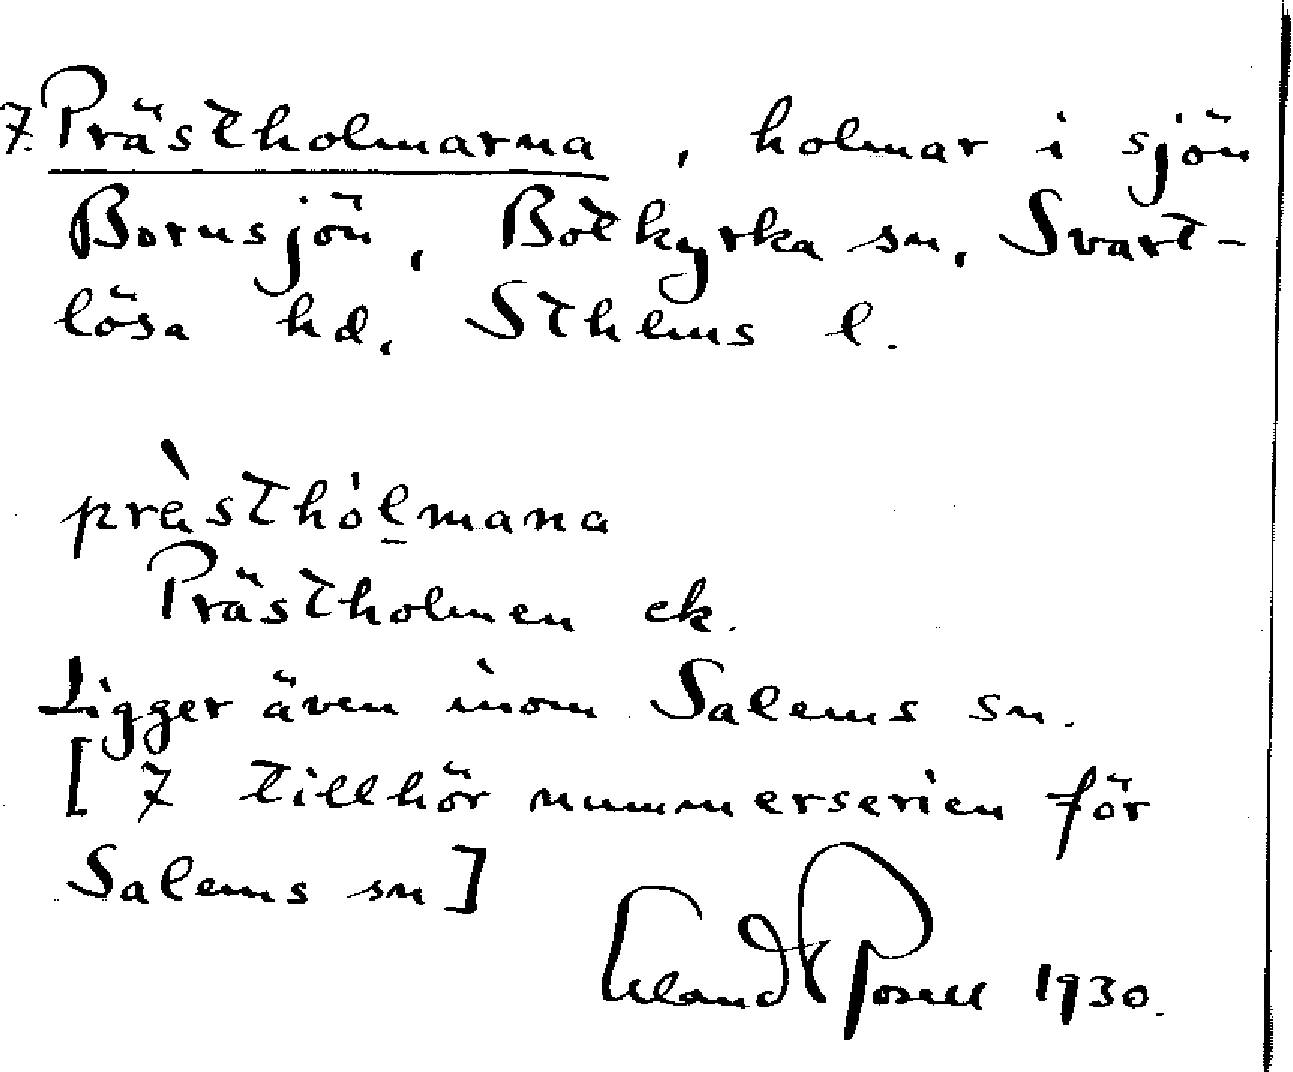 7. Prästholmarna, holmar i sjön
Bornsjön, Botkyrka sn, Svart-
lösa hd, Sthlms l.
prà̈sthòl̠mana
Prästholmen ek.
Ligger även inom Salems sn.
[ 7 tillhör nummerserien för
Salems sn ]
Erland Rosell 1930.